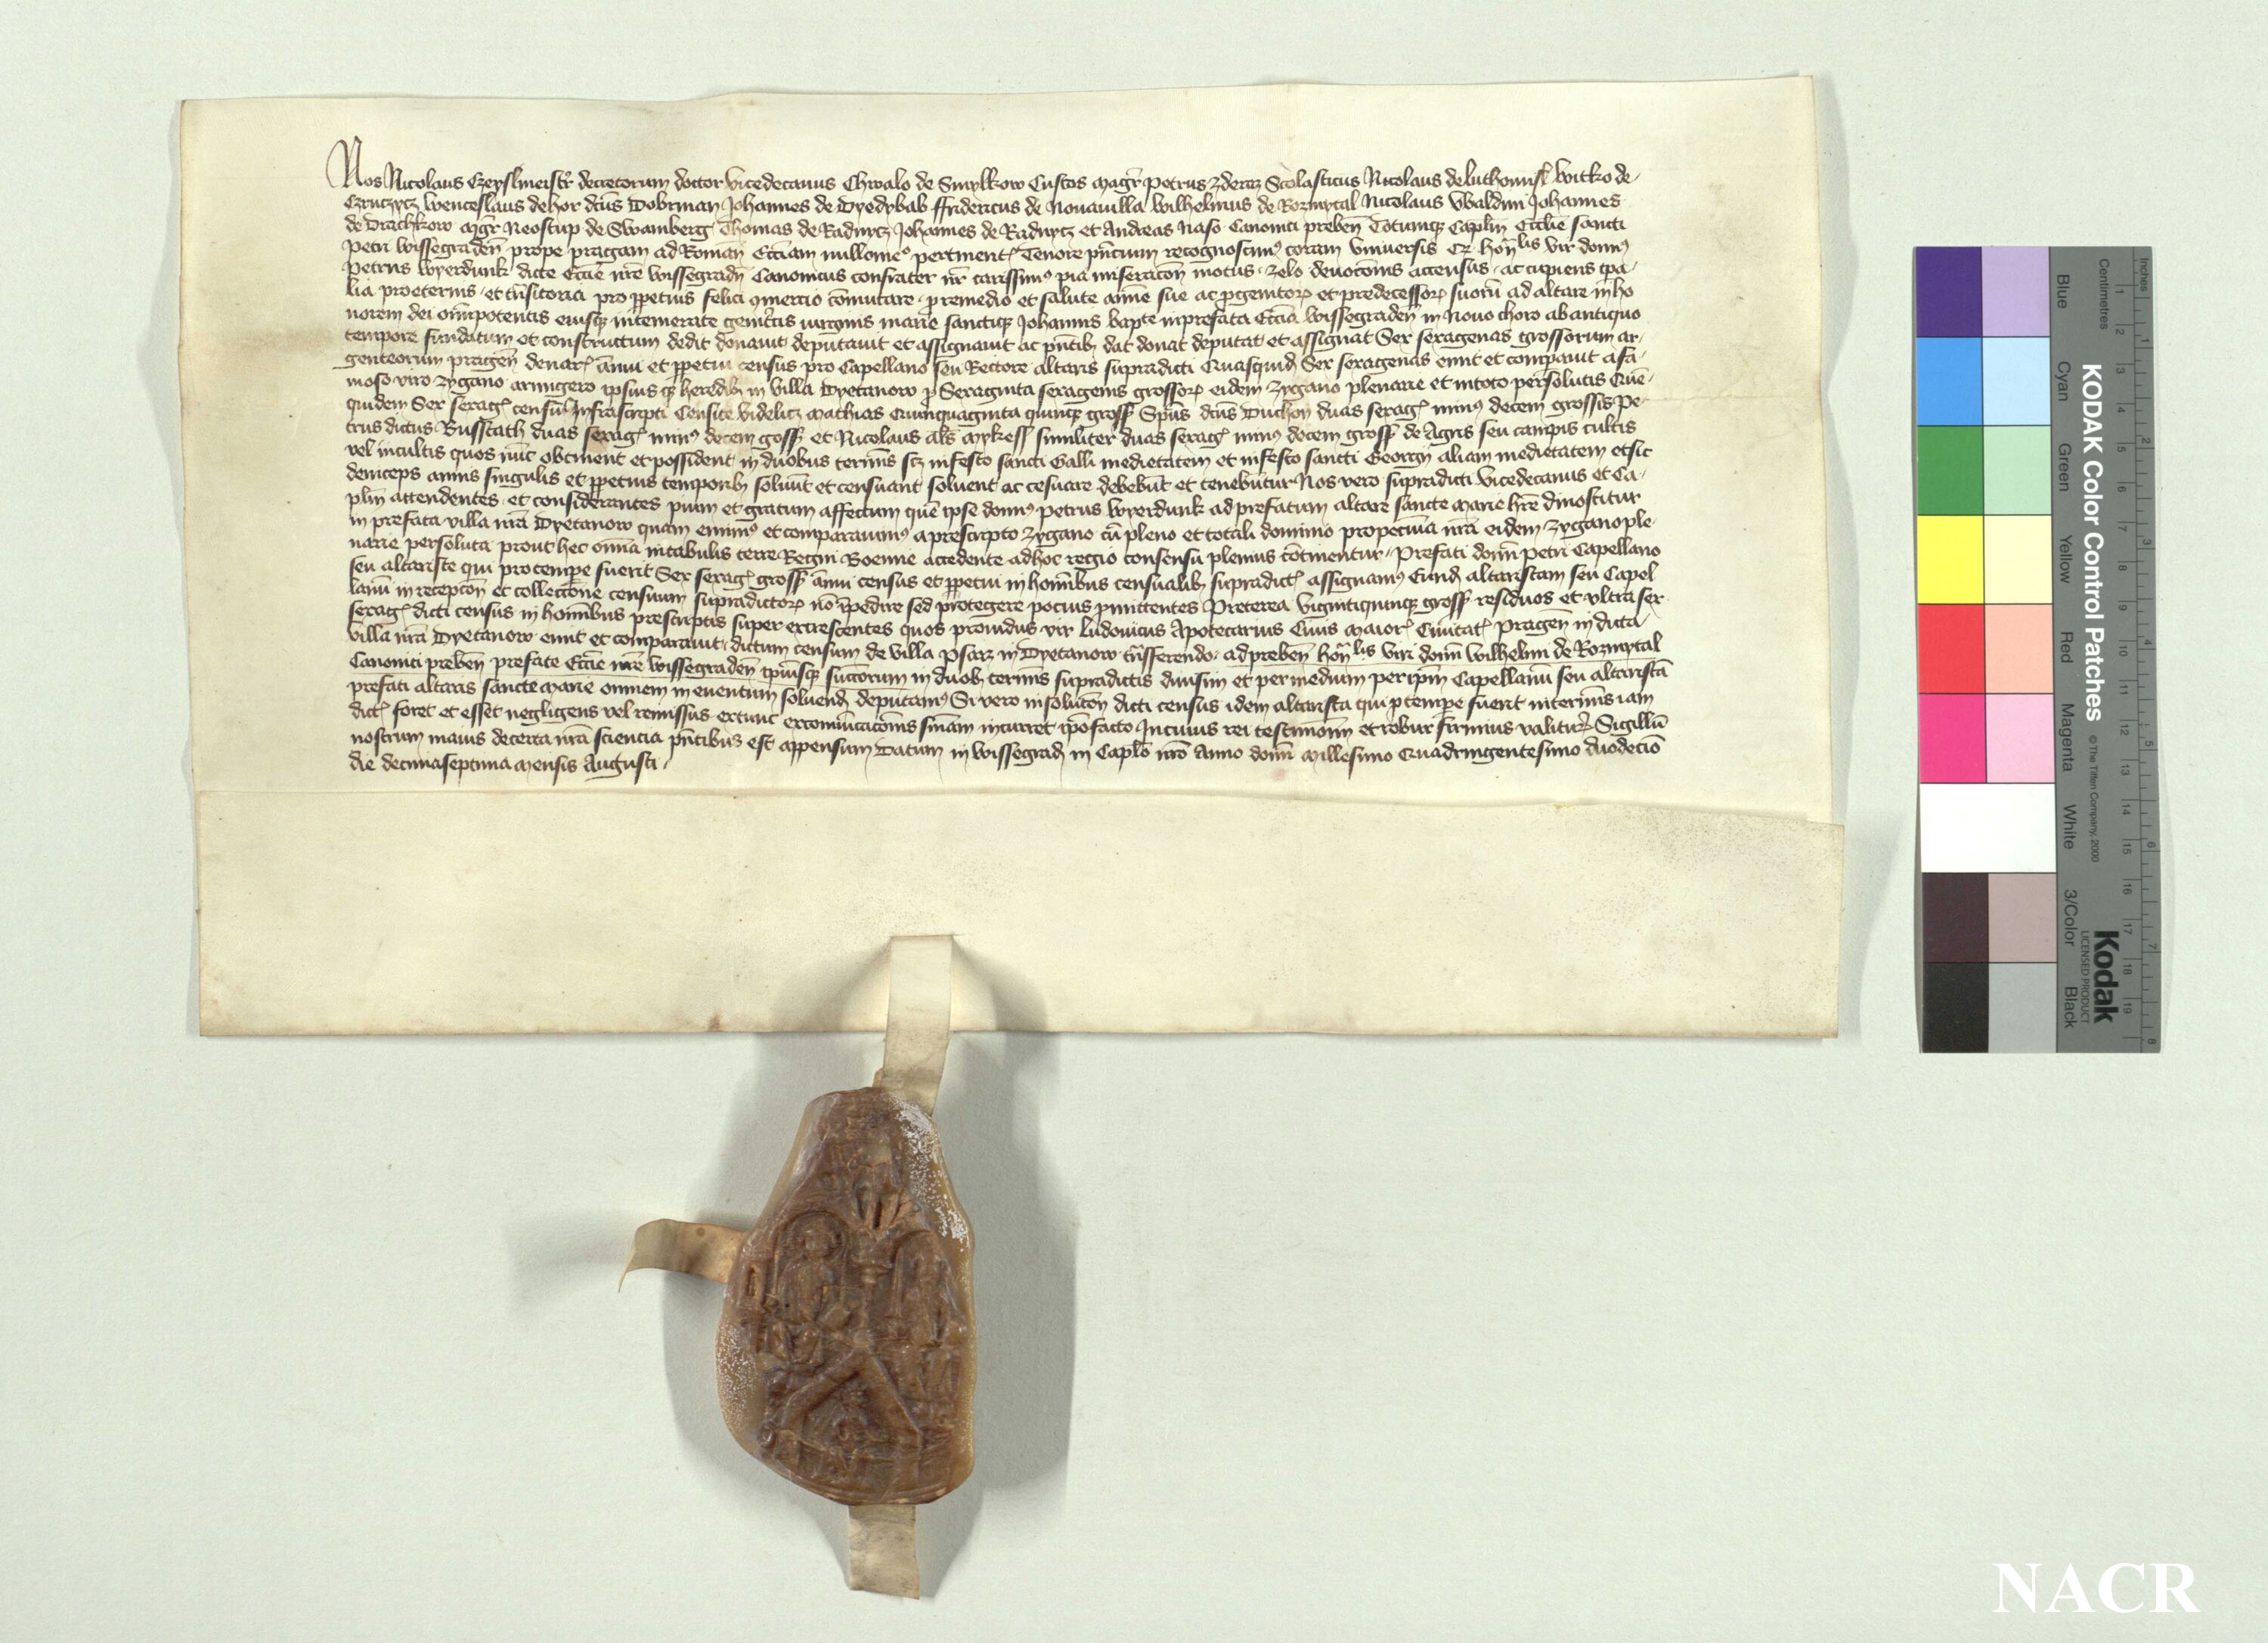 Nos Nicolaus Czeyslmeistr decretorum doctor vicedecanus Chwalo de Smylkow Custos Magr Petrus Zderaz Scolasticus Nicolaus de luthomisl witko de
Czruczycz wenceslaus de hor dcus Dobrman Johannes de Dyedybab ffridericus de Nouauilla wilhelmus de Rozmytal Nicolaus vbaldini Johannes
de Drachkow Mgr Neostup de Swamberg Thomas de Radnycz Johannes de Radnycz et Andreas Naso Canonici preben Totumq Caplm Ecclie sancti
Petri wissegraden prope pragam ad Roman Ecciam nullomeo pertinent Tenore pntium recognoscimus coram vniuersis Et honlis vir domnus
Petrus wyerdunk dicte Eccie nre wissegradn Canonicus confrater nr carissimus pia miseracon motus zelo deuocionis accensus ac cupiens tpa
lia pro eternis et tnsitoria pro ppetuis felici comercio comutare premedio et salute anime sue ac pgenitor et predecessor suoru ad altare in ho
norem dei omipotentis eiusq intemerate genitcis virginis marie sanctiq Johannis bapte in prefata Eccia wissegraden in Nouo choro ab antiquo
tempore fundatum et constructum dedit donauit deputauit et assignauit ac pntib dat donat deputat et assignat Sex sexagenas grossorum ar
genteorum pragen denar annui et ppetui census pro Capellano seu Rectore altaris supradicti Quasquid Sex sexagenas emit et comparauit a fa
moso viro zygano armigero ipsiusq heredib in villa Dyetanow p Sexaginta sexagenis grossor eidem zygano plenarie et in toto persolutis Que
quidem Sex sexag censu Infrascripti Censite videlicz Mathias Quinquaginta quinq gross Spus dcus Duchon duas sexag minus decem grossis Pe
trus dictus Russtath duas sexag minus decem gross et Nicolaus als Mykess similiter duas sexag minus decem gross de Agris seu campis cultis
vel incultis quos nuc obtinent et possident in duobus terminis scz in festo sancti Galli medietatem et in festo sancti Georgy aliam medietatem et sic
deinceps annis singulis et ppetuis temporib soluut et censuant soluent ac cesuare debebut et tenebuntur Nos vero supradicti vicedecanus et Ca
plm attendentes et considerantes pium et gratum affectum que ipse domnus Petrus wyerdunk ad prefatum altare sancte Marie hre dinoscitur
in prefata villa nra Dyetanow quam emimus et comparauimus a prescripto zygano cu pleno et totali dominio pro pecunia nra eidem zygano ple
narie persoluta prout hec omnia in tabulis terre Regni Boemie accedente ad hoc regio consensu plenius continentur Prefati domi Petri Capellano
seu altariste qui pro tempe fuerit Sex sexag gross annui census et ppetui in hominibus censualib supradict assignamus Eund altaristam seu Capel
lanu in recepcon et colleccione censuum supradictor no ipedire sed protegere pocius pmittentes Preterea vigintiquinq gross residuos et vltra sex
sexag dicti census in hominibus prescriptis super excrescentes quos prouidus vir ludouicus Apotecarius Ciuis Maior Ciuitat Pragen in dicta
villa nra Dyetanow emit et comparauit dictum censum de villa Psarz in Dyetanow tnsferendo ad preben honlis viri domi wilhelmi de Rozmytal
Canonici preben prefate Eccie nre wissegraden ipiusq succorum in duob terminis supradictis diuisim et per medium per ipm Capellanu seu altarista
prefati altaris sancte Marie omnem in euentum soluend deputamus Si vero in soluton dicti census idem altarista qui p tempe fuerit in terminis iam
dict foret et esset negligens vel remissus extunc excomunicacionis sniam incurret ipo facto In cuius rei testimonium et robur firmius valitur Sigillu
nostrum maius de certa nra sciencia pntibus est appensum Datum in wissegrad in Caplo nro Anno domi Millesimo Quadringentesimo duodecio
die decimaseptima Mensis Augusti
KODAK Color Control Patches © The Tiffen Company, 2000
Kodak
LICENSED PRODUCT
Blue Cyan Green Yellow Red Magenta White 3/Color Black
Centimetres
Inches
1 2 3 4 5 6 7 8 9 10 11 12 13 14 15 16 17 18 19
1 2 3 4 5 6 7 8
NACR